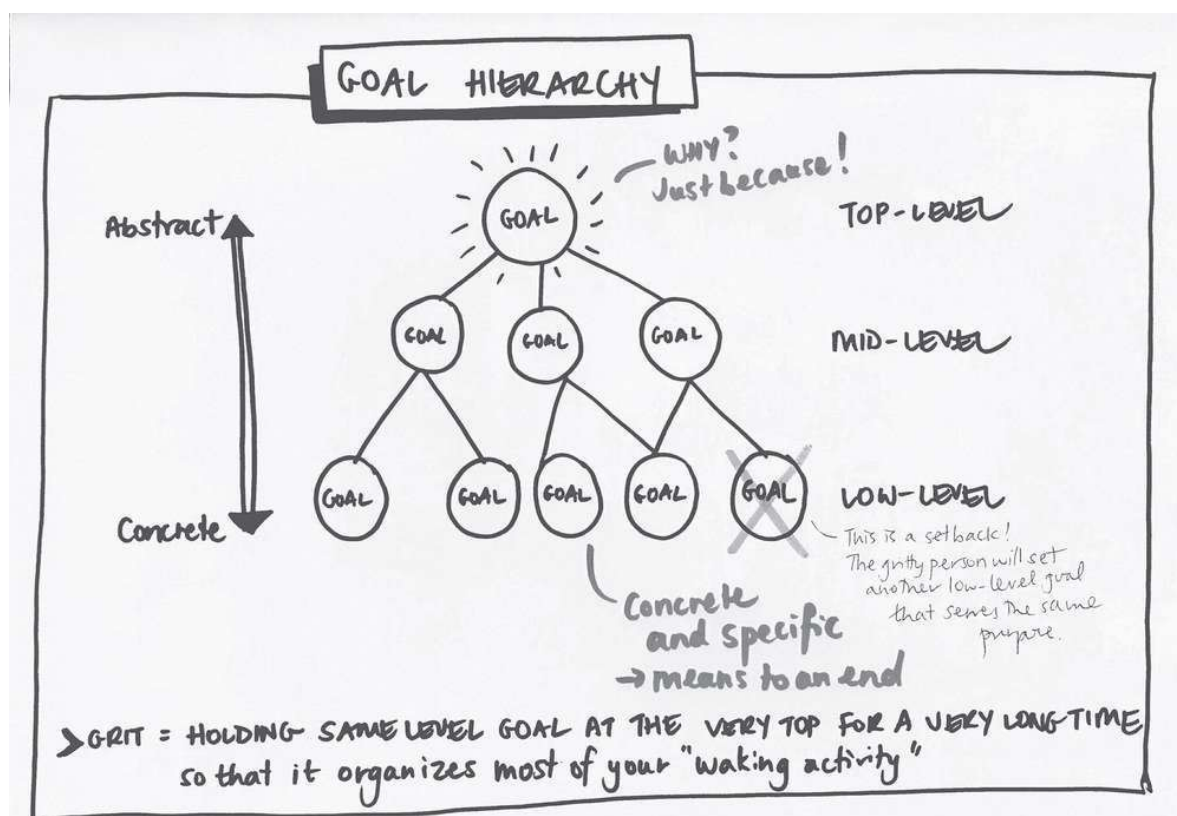 GOAL HIERARCHY
WHY?
Just because!
Abstract
GOAL
TOP-LEVEL
GOAL
GOAL
GOAL
MID-LEVEL
GOAL
GOAL
GOAL
GOAL
GOAL
LOW-LEVEL
Concrete
This is a setback!
The gritty person will set
another low-level goal
that serves the same
purpose.
Concrete
and specific
→ means to an end
> GRIT = HOLDING SAME LEVEL GOAL AT THE VERY TOP FOR A VERY LONG TIME
so that it organizes most of your "waking activity"